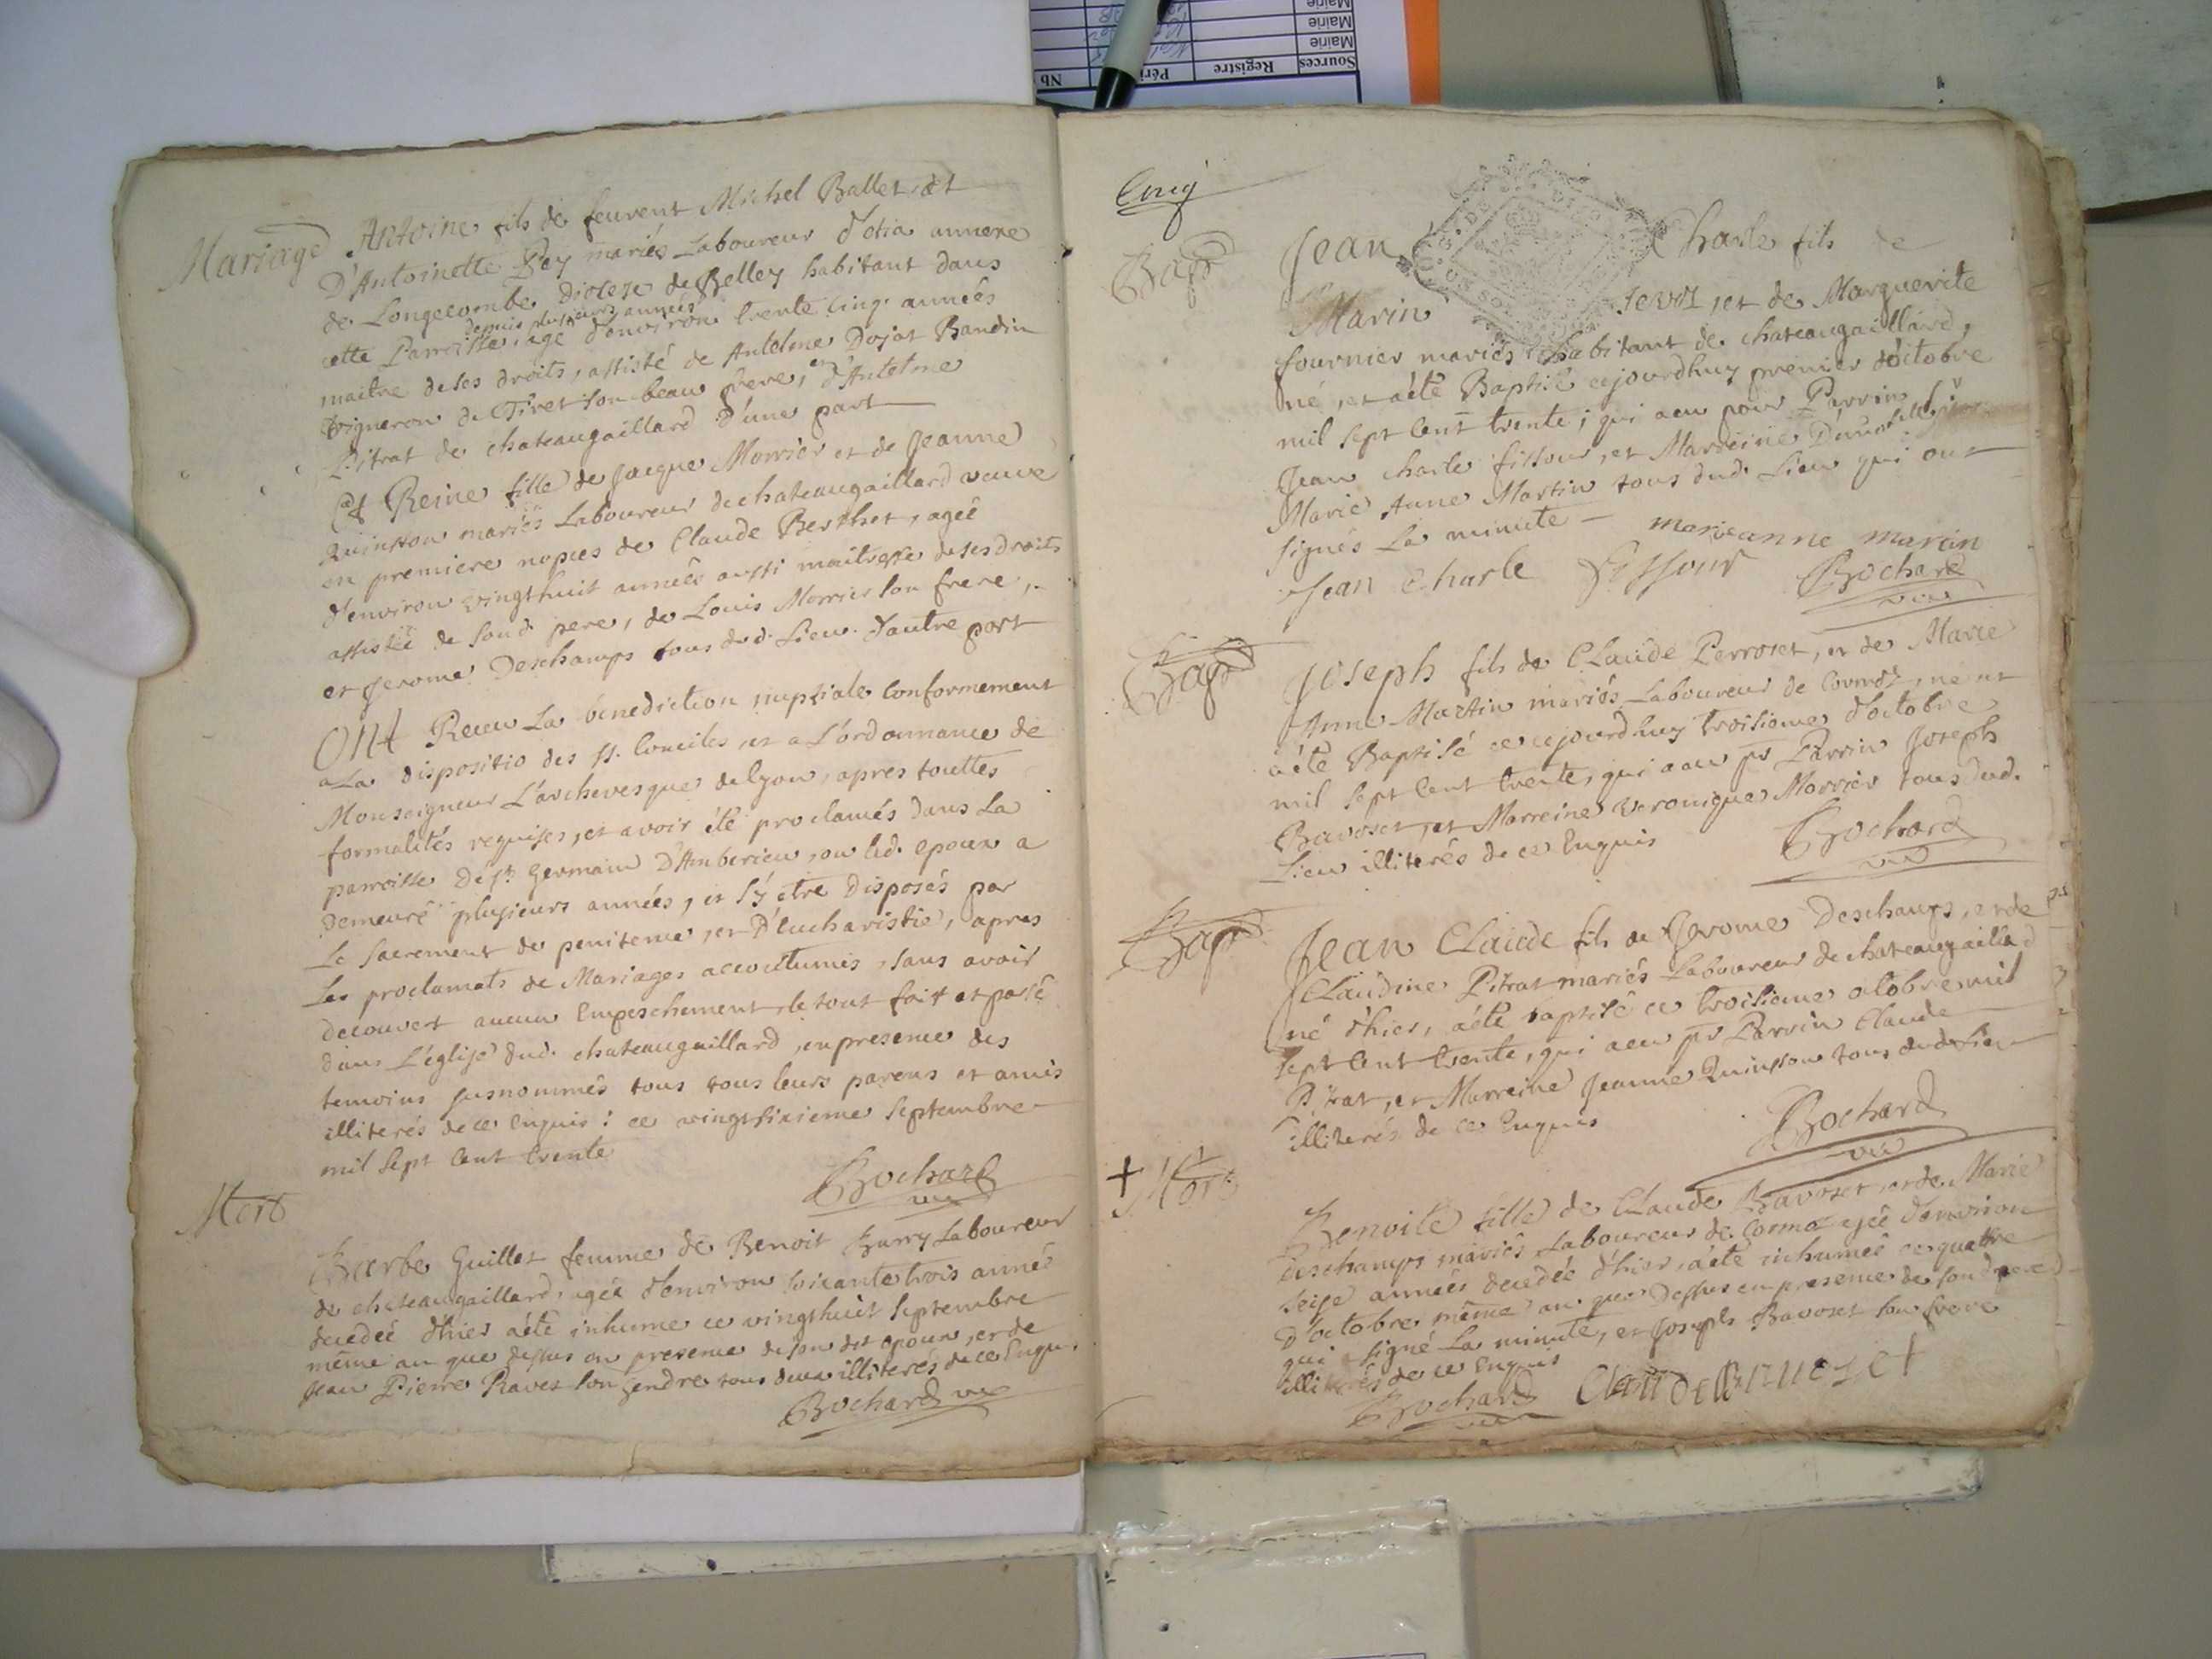 Mariage Antoine fils de feurent Michel Ballet et
D'Antoinette Pey mariés Laboureur d'otia annexe
de Longecombe Diocese de Belley habitant dans
depuis plusieurs années
cette Parroisse, agé d'environ trente cinq années
maitre de ses droits, assisté de Antelme Dojat Baudin
vigneron de Tiret son beau frere, et d'Antelme
Pitrat de chateaugaillard d'une part
Et Reine fille de Jacque Morrier et de Jeanne
Quinsson mariés Laboureur de chateaugaillard veuve
en premiere nopces de Claude Berthet, agée
d'environ vingthuit années aussi maitresse de ses droits
assistée de sond. pere, de Louis Morrier son frere,
et Jerome Deschamps tous dud. Lieu. d'autre part
Ont Receu La benediction nuptiale conformement
a La dispositio des SS. Conciles, et a L'ordonnance de
Monseigneur L'archevesque de lyon, apres touttes
formalités requises, et avoir été proclamés dans La
parroisse de St. Germain D'Amberieu, ou led. epoux a
demeuré plusieurs années, et s'y etre disposés par
Le sacrement de penitence, et D'eucharistie, apres
Les proclamats de Mariages accoutumés, sans avoir
decouvert aucun Empeschement, le tout fait et passé
dans L'église dud. chateaugaillard, en presence des
temoins susnommés tous tous leurs parens et amis
illiterés de ce Enquis: ce vingtsixieme Septembre
mil Sept Cent trente
Bochard
vic
Mort
Barbe Guillet femme de Benoit Burry Laboureur
de chateaugaillard, agée d'environ soixante trois année
decedée d'hier a été inhumé ce vingthuit Septembre
même an que dessus en presence de son dit epoux, et de
Jean Pierre Ravet son gendre tous deux illiterés de ce Enqu.
Bochard vic
Cinq
Bapt Jean Charle fils de
Marin et de Marguerite
fournier mariés habitant de chateaugaillard,
né, et a été Baptisé cejourdhuy premier d'octobre
mil Sept Cent trente; qui a eu pour Parrin Sr
Jean charle fissour, et Marreine Demoiselle
Marie Anne Martin tous dud. Lieu qui ont
signés La minute
marieanne martin
Jean Charle fissour Bochard
vic
Bapt Joseph fils de Claude Perroset, et de Marie
Anne Martin mariés Laboureur de Cormoz, né et
a été Baptisé ce cejourdhuy troisieme d'octobre
mil Sept Cent trente, qui a eu pr Parrin Joseph
Bavoset, et Marreine Veronique Morrier tous dud.
Lieu illiterés de ce Enquis Bochard
vic
Bapt Jean Claude fils de Jerome Deschamps, et de
Claudine Pitrat mariés Laboureur de chateaugaillard
né d'hier, a été baptisé ce troisieme octobre mil
Sept Cent trente, qui a eu pr Parrin Claude
Pitrat, et Marreine Jeanne Quinsson tous dud. Lieu
illiterés de ce Enquis
Bochard
vic
+ Mort
Benoite fille de Claude Bavoset, et de Marie
Deschamps mariés Laboureur de Cormoz agée d'environ
seize années decedée d'hier, a été inhumée ce quattre
d'octobre même an que dessus en presence de sond pere
qui a signé La minute, et Joseph Bavoset son frere
illiterés de ce Enquis
Bochard Claude Bavoset
vic
Sources Registre Péri Nb
Mairie
Mairie
Mairie